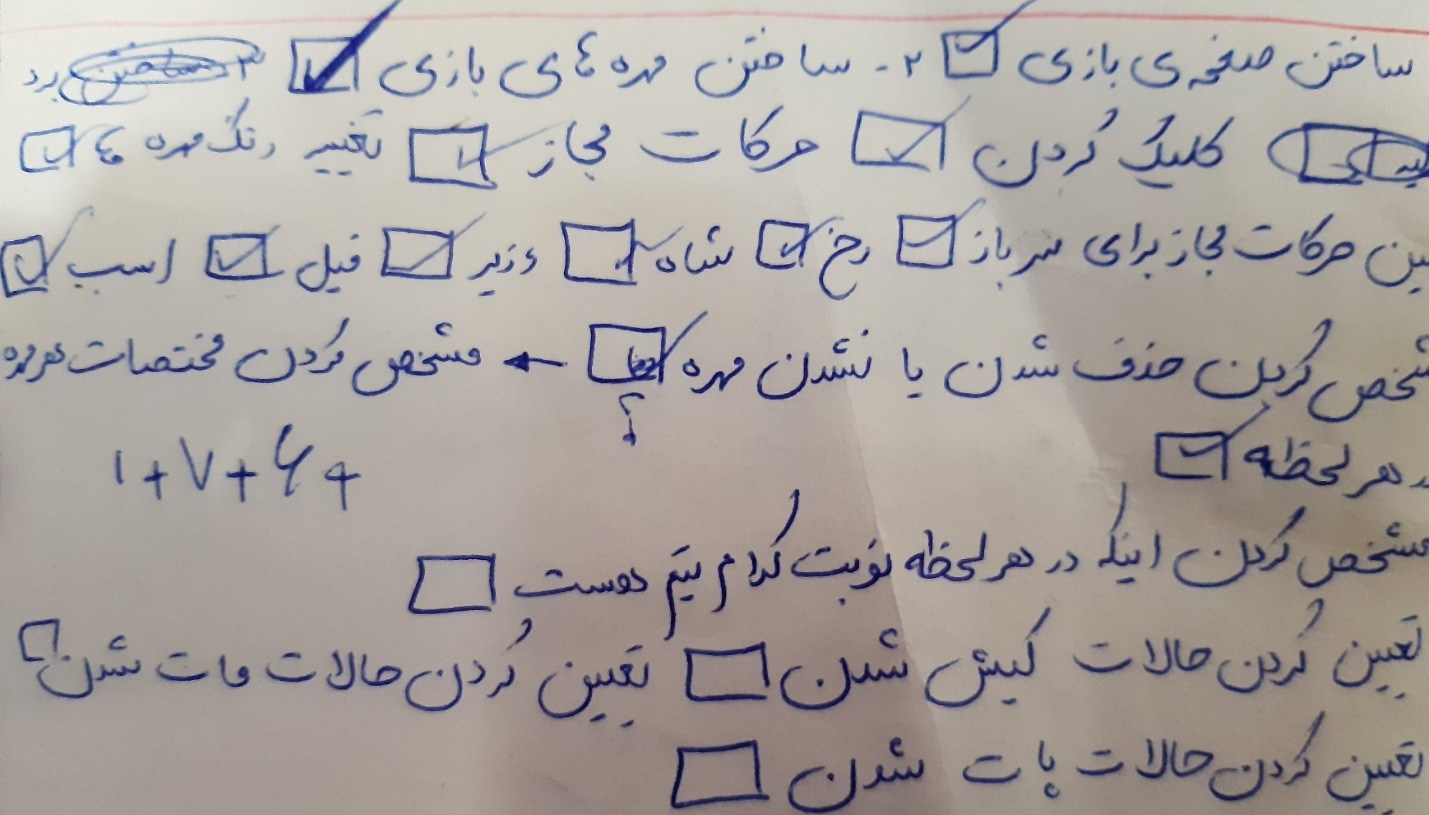 ساختن صفحه ی بازی ☑ ۲- ساختن مهره های بازی ☑ ۳-
کلیک کردن ☑ حرکات مجاز ☑ تغییر رنگ مهره ها ☑
حرکات مجاز برای سرباز ☑ رخ ☑ شاه ☑ وزیر ☑ فیل ☑ اسب ☑
مشخص کردن حذف شدن یا نشدن مهره ☑ ← مشخص کردن مختصات هر مهره
در هر لحظه ☑ ؟
۱+۷+۴+
مشخص کردن اینکه در هر لحظه نوبت کدام تیم هست □
تعیین کردن حالات کیش شدن □ تعیین کردن حالات مات شدن □
تعیین کردن حالات پات شدن □